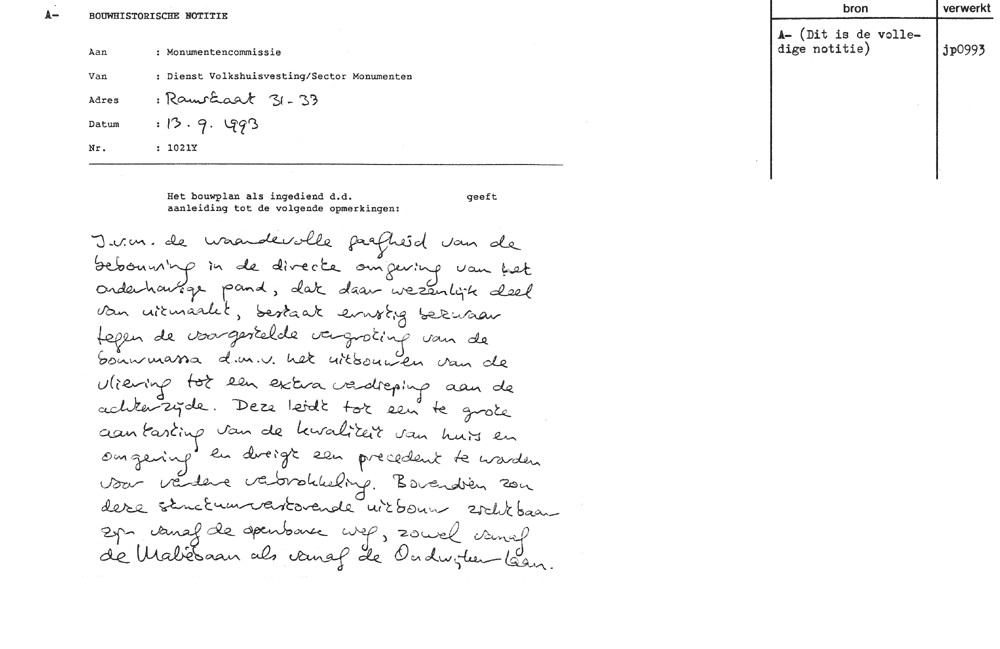 A- BOUWHISTORISCHE NOTITIE
Aan : Monumentencommissie
Van : Dienst Volkshuisvesting/Sector Monumenten
Adres : Ramstraat 31-33
Datum : 13.9.1993
Nr. : 1021Y
Het bouwplan als ingediend d.d. geeft
aanleiding tot de volgende opmerkingen:
I.v.m. de waardevolle gaafheid van de
bebouwing in de directe omgeving van het
onderhavige pand, dat daar wezenlijk deel
van uitmaakt, bestaat ernstig bezwaar
tegen de voorgestelde vergroting van de
bouwmassa d.m.v. het uitbouwen van de
vliering tot een extra verdieping aan de
achterzijde. Deze leidt tot een te grote
aantasting van de kwaliteit van huis en
omgeving en dreigt een precedent te worden
voor verdere verbrokkeling. Bovendien zou
deze structuurverstorende uitbouw zichtbaar
zijn vanaf de openbare weg, zowel vanaf
de Maliebaan als vanaf de Oudwijkerlaan.
bron
verwerkt
A- (Dit is de volle-
dige notitie)
jp0993